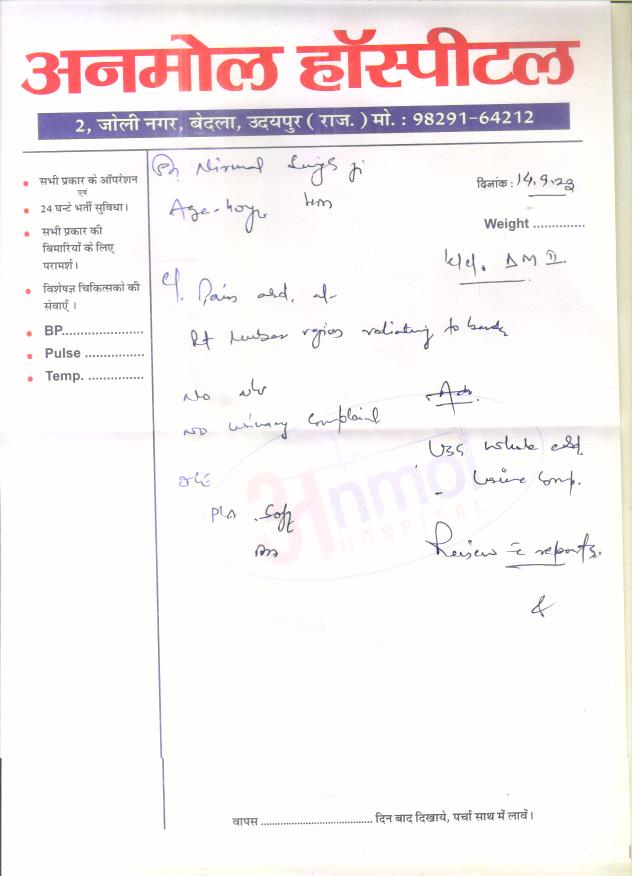 अनमोल हॉस्पीटल
2, जोली नगर, बेदला, उदयपुर ( राज. ) मो. : 98291-64212
सभी प्रकार के ऑपरेशन
एवं
24 घन्टे भर्ती सुविधा।
सभी प्रकार की
बिमारियों के लिए
परामर्श।
विशेषज्ञ चिकित्सकों की
सेवाएँ ।
BP.....................
Pulse ................
Temp. ...............
Nirmal Singh ji
दिनांक : 14.9.22
Age-
Weight ..............
K/c/o. DM II.
Pain abd. at
Rt lumbar region radiating to back
No N/V
No urinary complaint
USG whole abd.
O/E
- Urine comp.
P/A Soft
Review c reports.
अnmol
HOSPITAL
वापस ........................................ दिन बाद दिखाये, पर्चा साथ में लावें।